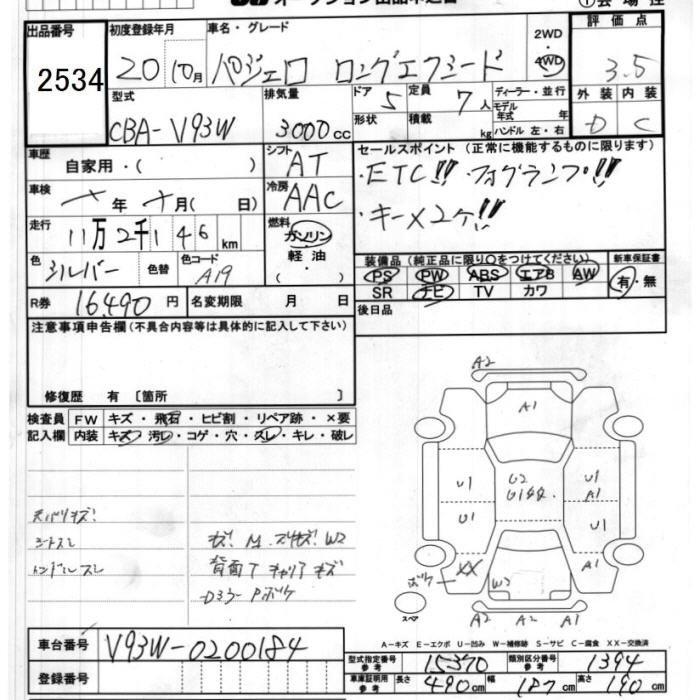 オークション出品申込書
①会場控
出品番号
2534
初度登録年月
20 10月
車名・グレード
パジェロ ロングエクシード
2WD
・
4WD
評価点
3.5
外装 内装
D C
型式
CBA-V93W
排気量
3000cc
ドア 5
形状
定員 7人
積載 kg
ディーラー・並行
モデル年式 年
ハンドル 左・右
車歴
自家用・( )
シフト
AT
セールスポイント (正常に機能するものに限ります)
・ETC!! フォグランプ!!
・キー×2ケ!!
車検
年 月( 日)
冷房
AAC
走行
11万2千146km
燃料
ガソリン
軽油
・( )
色
シルバー
色替
色コード
A19
装備品 (純正品に限り○をつけてください)
PS PW ABS エアB AW
SR ナビ TV カワ
新車保証書
有・無
R券
16,490円
名変期限 月 日
後日品
注意事項申告欄(不具合内容等は具体的に記入して下さい)
修復歴 有 〔箇所 〕
検査員記入欄
FW キズ・飛石・ヒビ割・リペア跡・×要
内装 キズ・汚レ・コゲ・穴・スレ・キレ・破レ
天バリキズ!
シートスレ
ハンドルスレ
背面T キャリアキズ
A2
A1
U2
U1
U1
U1
A1
U1
XX
ボケ
W3
A1
スペア
A2 A2 A1
A-キズ E-エクボ U-凹み W-補修跡 S-サビ C-腐食 XX-交換済
車台番号
V93W-0200184
登録番号
型式指定番号 参考
15370
類別区分番号 参考
1394
車庫証明用 参考
長さ 490cm
幅 187cm
高さ 190cm